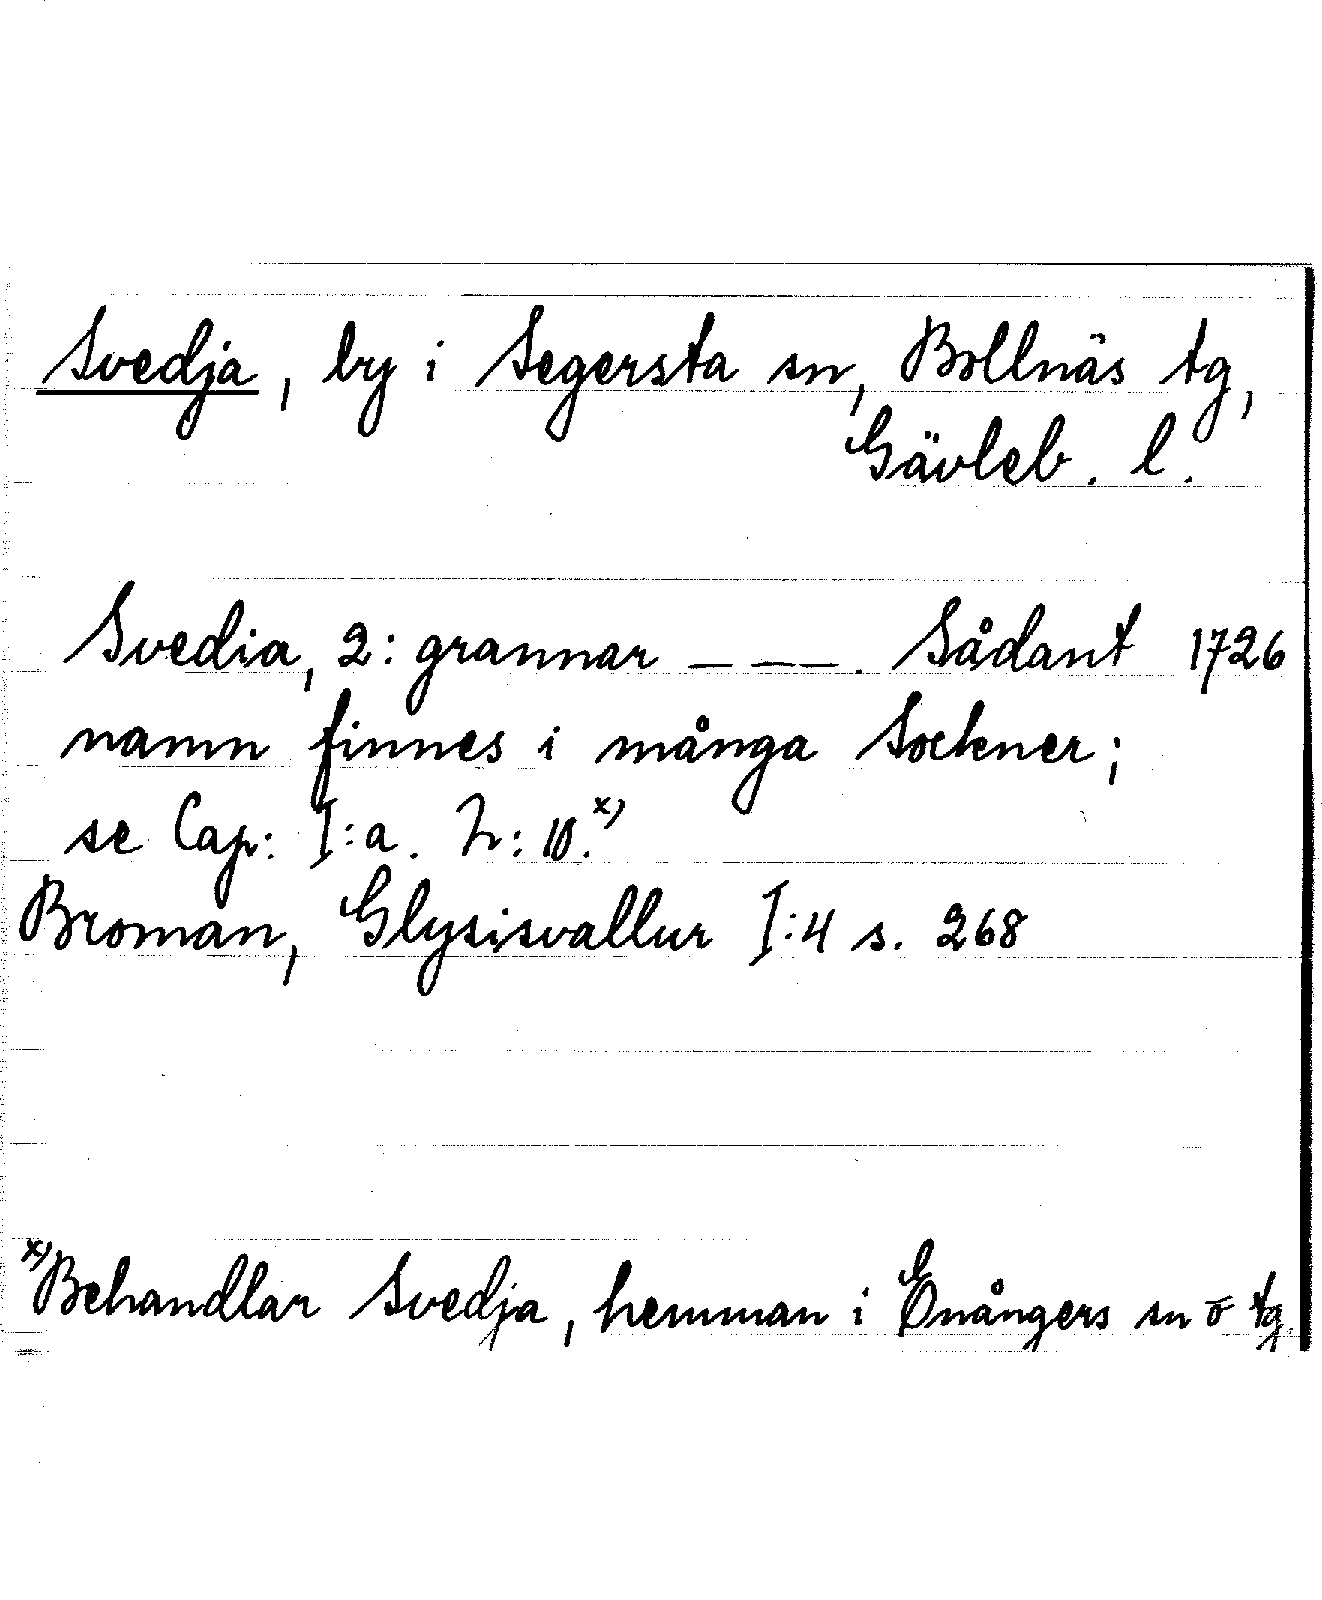 Svedja, by i Segersta sn, Bollnäs tg,
Gävleb. l.
Svedia, 2: grannar _ _ _. Sådant 1726
namn finnes i många Sockner;
se Cap: I:a. h: 10.x)
Broman, Glysisvallur I:4 s. 268
x) Behandlar Svedja, hemman i Enångers sn o tg.